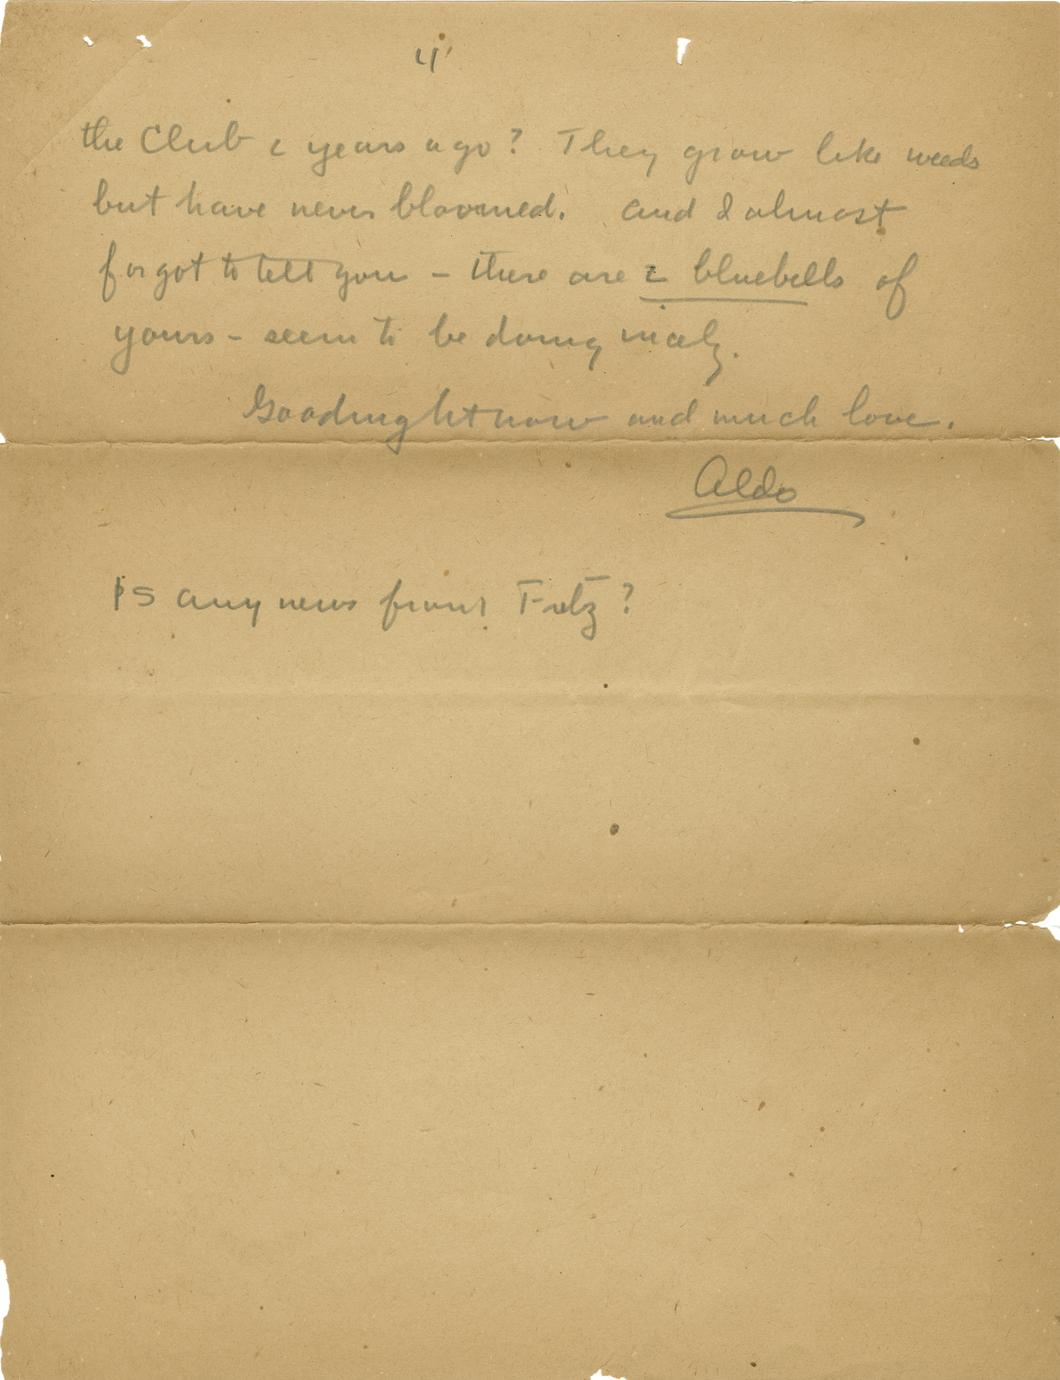 4
the Club 2 years ago? They grow like weeds
but have never bloomed. And I almost
forgot to tell you - there are 2 bluebells of
yours - seem to be doing nicely.
Goodnight now and much love.
Aldo
PS any news from Fritz?